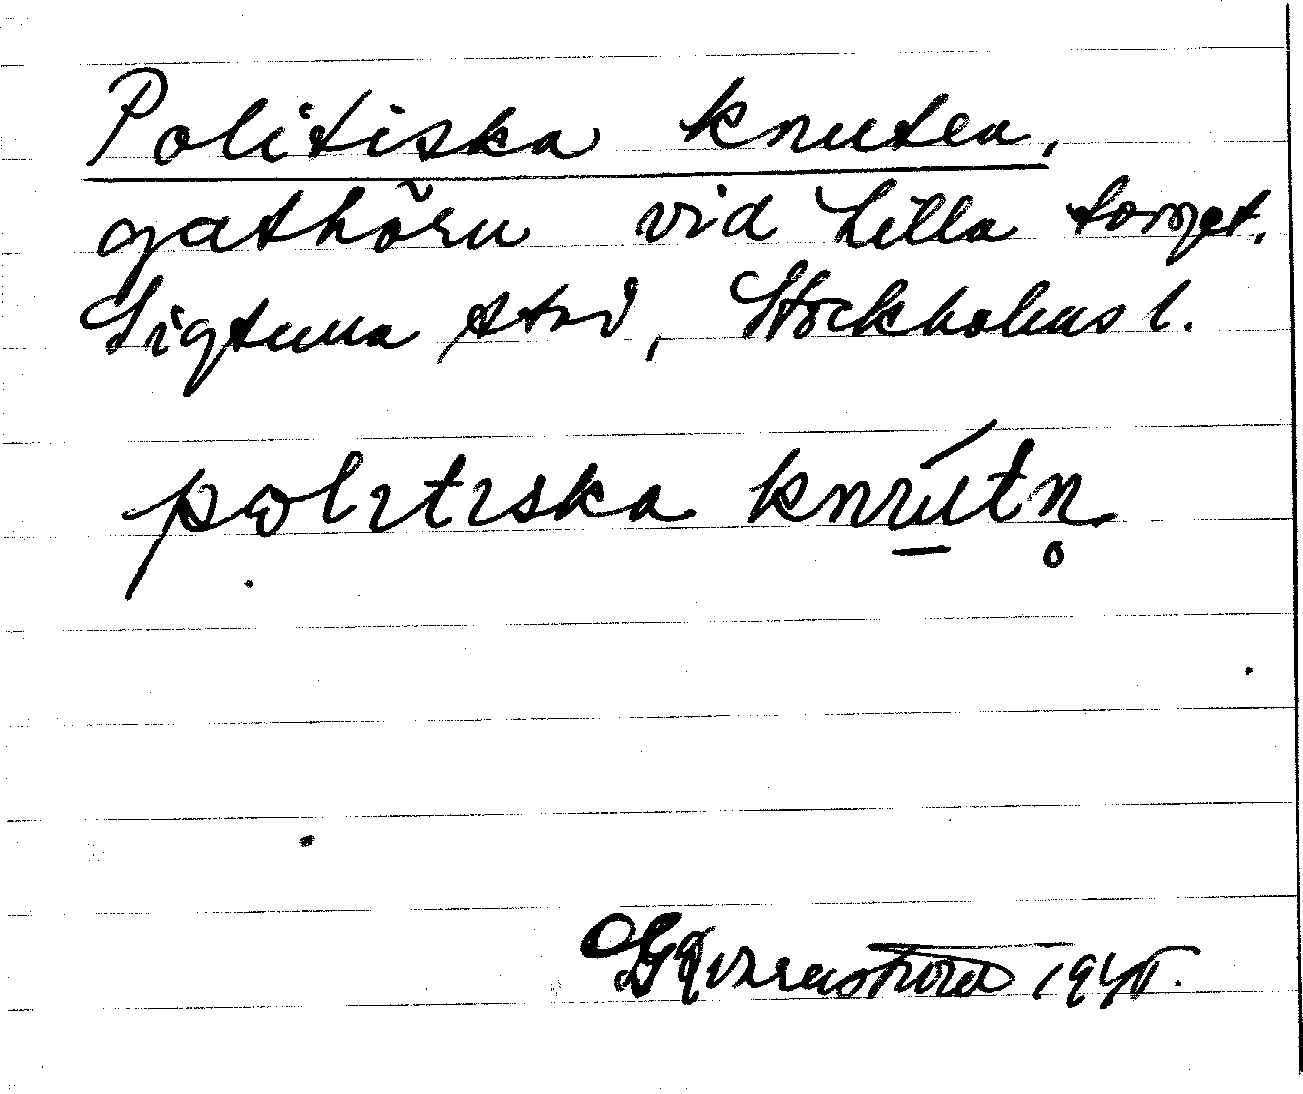 Politiska knuten,
gathörn vid Lilla torget.
Sigtuna stad, Stockholms l.
politiska knútn̥
1945.